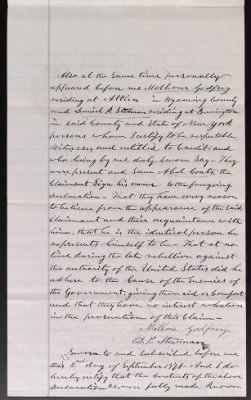 Also at the same time personally
appeared before me Melborn Godfrey
residing at Attica in Wyoming County
and Daniel H. Stedman residing at Bennington
in said County and State of New York
persons whom I certify to be respectable
Witnesses and entitled to Credit and
who being by me duly sworn say. They
were present and saw Abel Coats the
Claimant sign his name to the foregoing
declaration. That they have every reason
to believe from the appearance of the said
Claimant and their acquaintance with
him, that he is the identical person he
represents himself to be. That at no
time during the late rebellion against
the authority of the United States did he
adhere to the Cause of the Enemies of
the Government, giving them aid or Comfort
and that they have no interest whatever
in the prosecution of this Claim.
Godfrey
D. H. Stedman
Sworn to and subscribed before me
this day of September 1871. And I do
hereby certify that the contents of the above
Declaration were fully made known